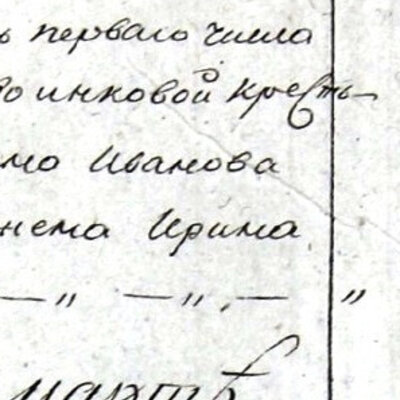 ь перваго числа
во инковой кресть-
мо Иванова
нема Ирина
— „ — „ , — „
мартѣ